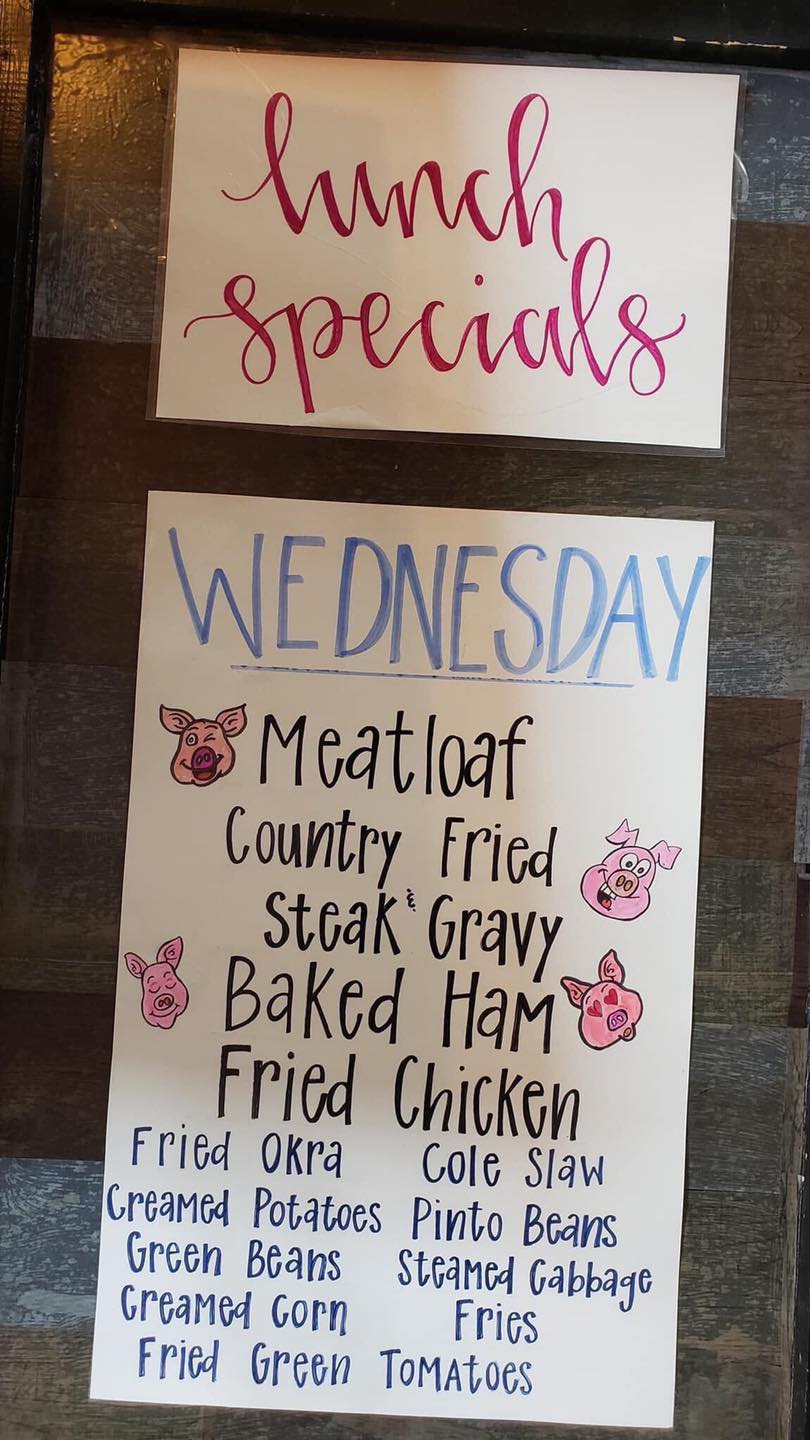 lunch
specials
WEDNESDAY
Meatloaf
Country Fried
Steak & Gravy
Baked Ham
Fried Chicken
Fried Okra Cole Slaw
Creamed Potatoes Pinto Beans
Green Beans Steamed Cabbage
Creamed Corn Fries
Fried Green Tomatoes